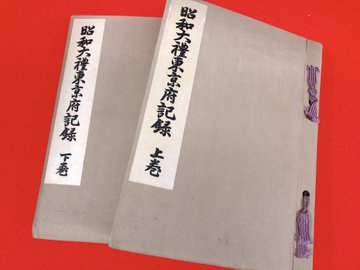 昭和大禮東京府記録 上巻
昭和大禮東京府記録 下巻